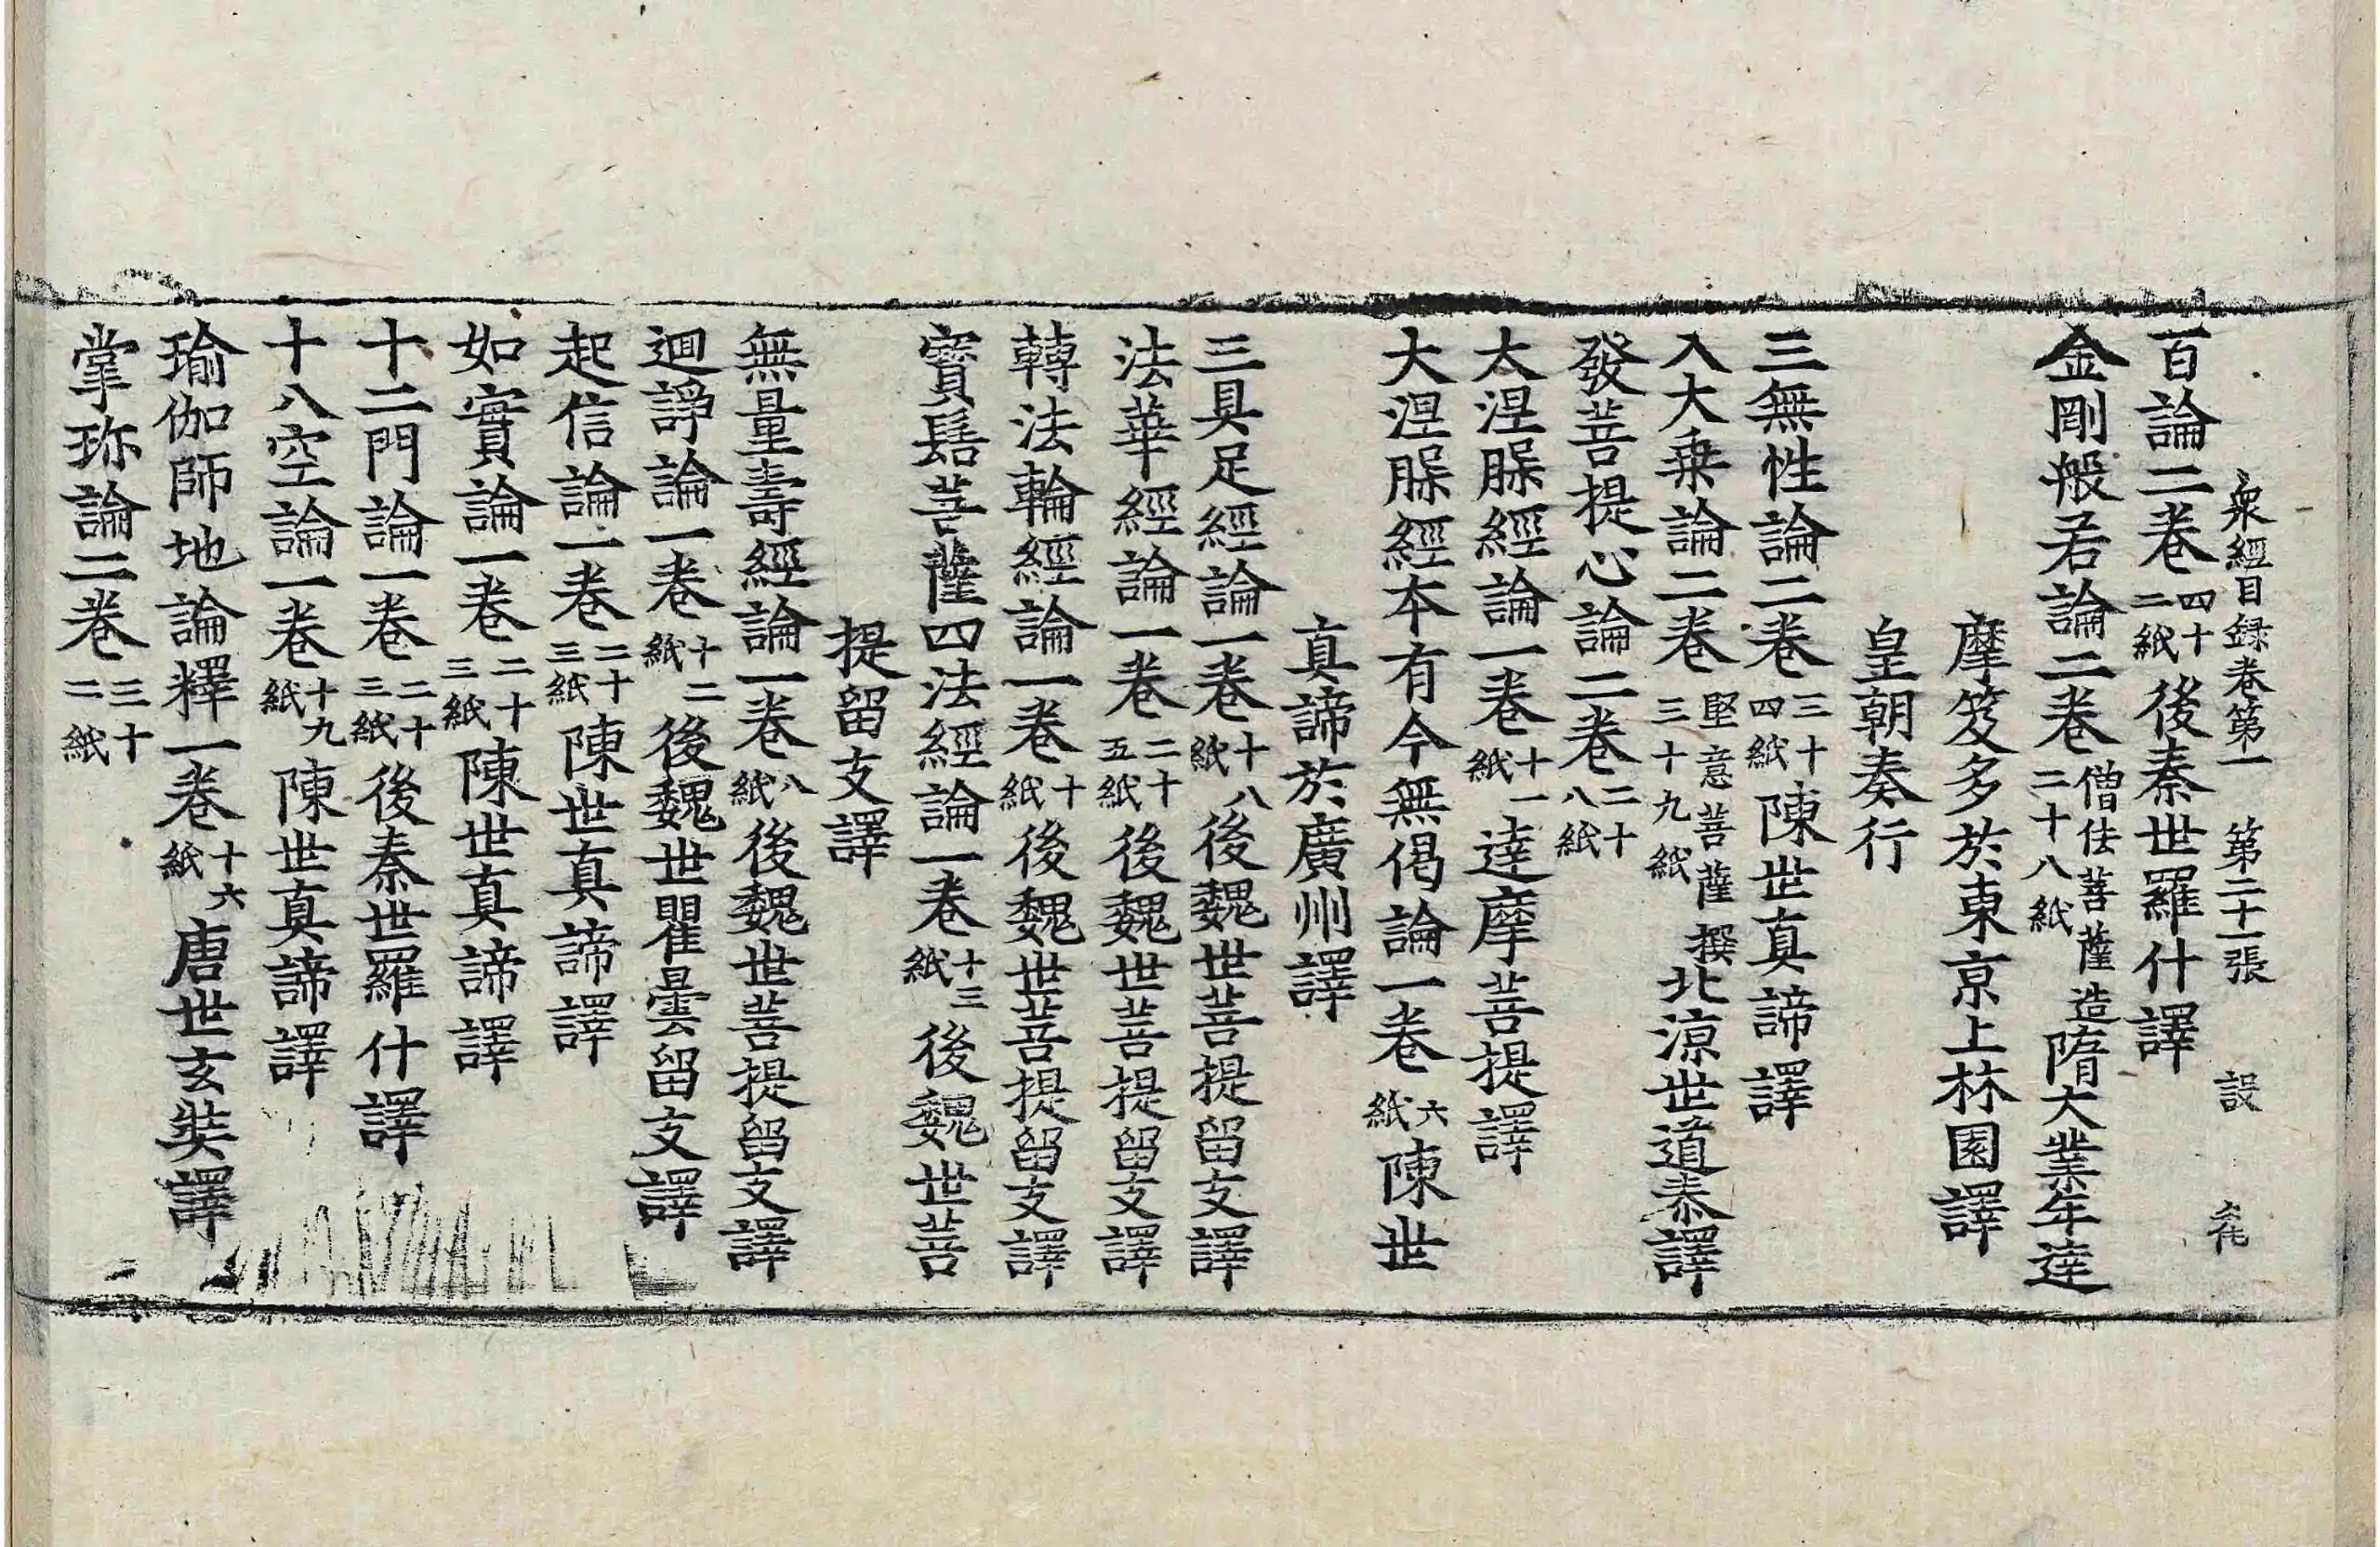 衆經目録卷第一 第二十一張 設
百論二卷四十二紙後秦世羅什譯
金剛般若論二卷僧佉菩薩造二十八紙隋大業年達
摩笈多於東京上林園譯
皇朝奏行
三無性論二卷三十四紙陳世真諦譯
入大乗論二卷堅意菩薩撰三十九紙北涼世道泰譯
發菩提心論二卷二十八紙
大涅脲經論一卷十一紙達摩菩提譯
大涅脲經本有今無偈論一卷六紙陳世
真諦於廣州譯
三具足經論一卷十八紙後魏世菩提留支譯
法華經論一卷二十五紙後魏世菩提留支譯
轉法輪經論一卷十紙後魏世菩提留支譯
寳髻菩薩四法經論一卷十三紙後魏世菩
提留支譯
無量壽經論一卷八紙後魏世菩提留支譯
迴諍論一卷十二紙後魏世瞿曇留支譯
起信論一卷二十三紙陳世真諦譯
如實論一卷二十三紙陳世真諦譯
十二門論一卷二十三紙後秦世羅什譯
十八空論一卷十九紙陳世真諦譯
瑜伽師地論釋一卷十六紙唐世玄奘譯
掌珎論二卷三十二紙